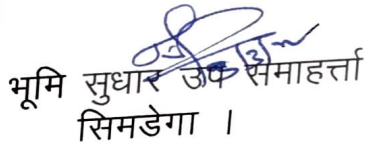 भूमि सुधार उप समाहर्त्ता
सिमडेगा ।